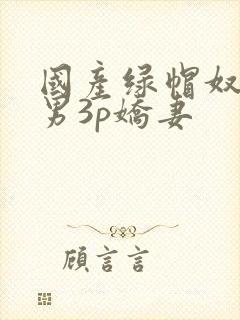 國產绿帽奴
男3p嬌妻
顧言言